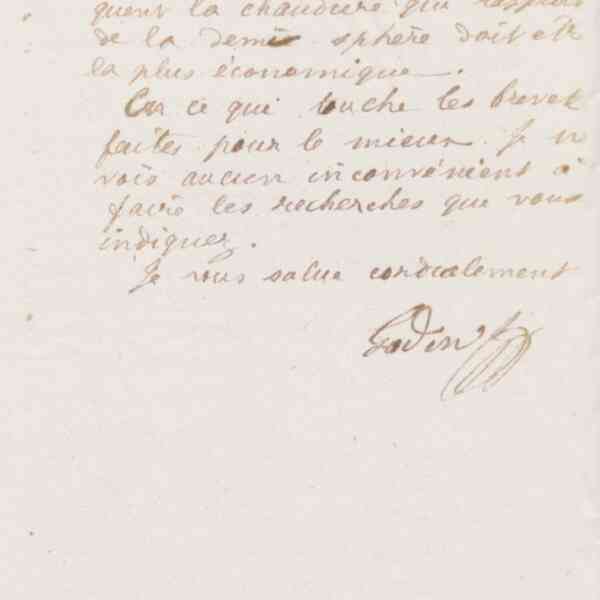 quent la chaudière qui
de la demie sphère doit êtr
la plus économique.
En ce qui touche les brevet
faites pour le mieux. Je n
vois aucun inconvénient à
faire les recherches que vous
indiquez.
Je vous salue cordialement
Godin